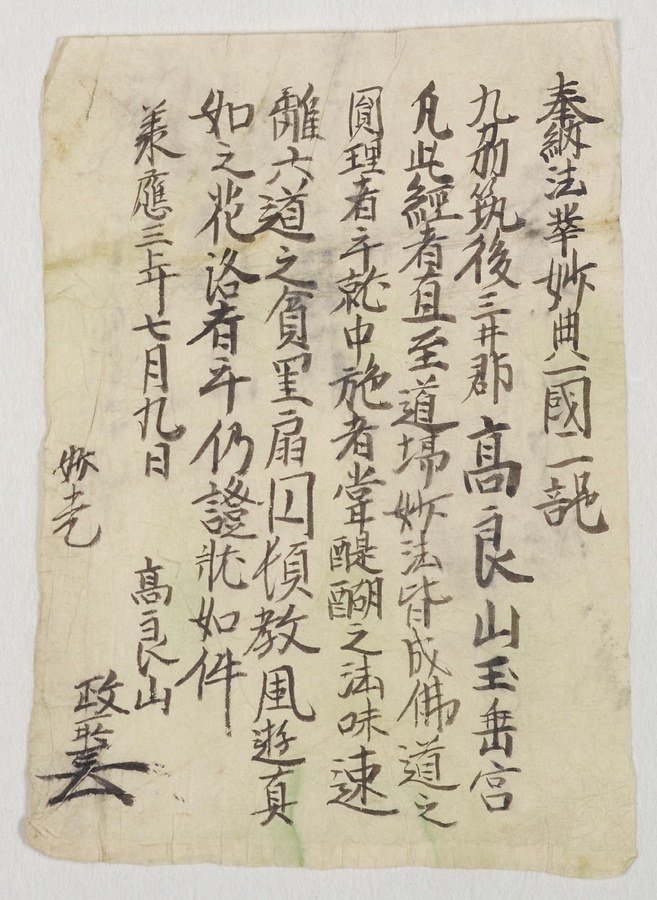 奉納法華妙典一國一部
九劦筑後三井郡高良山玉垂宮
凡此經者直至道場妙法皆成佛道之
圓理者乎就中施者甞醍醐之法味速
離六道之貧里扇圓頓教風遊真
如之花洛者乎仍證狀如件
羕應三年七月九日
高良山
政所
妙尭